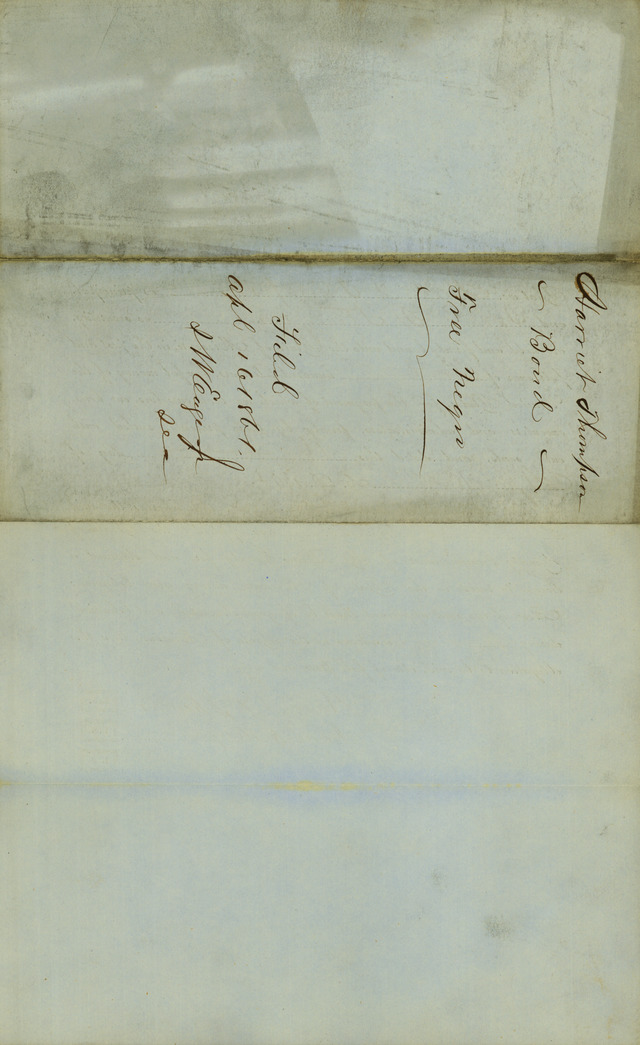 Harriet Thompson
Bond
Free Negro
Filed
Apl 16 1861.